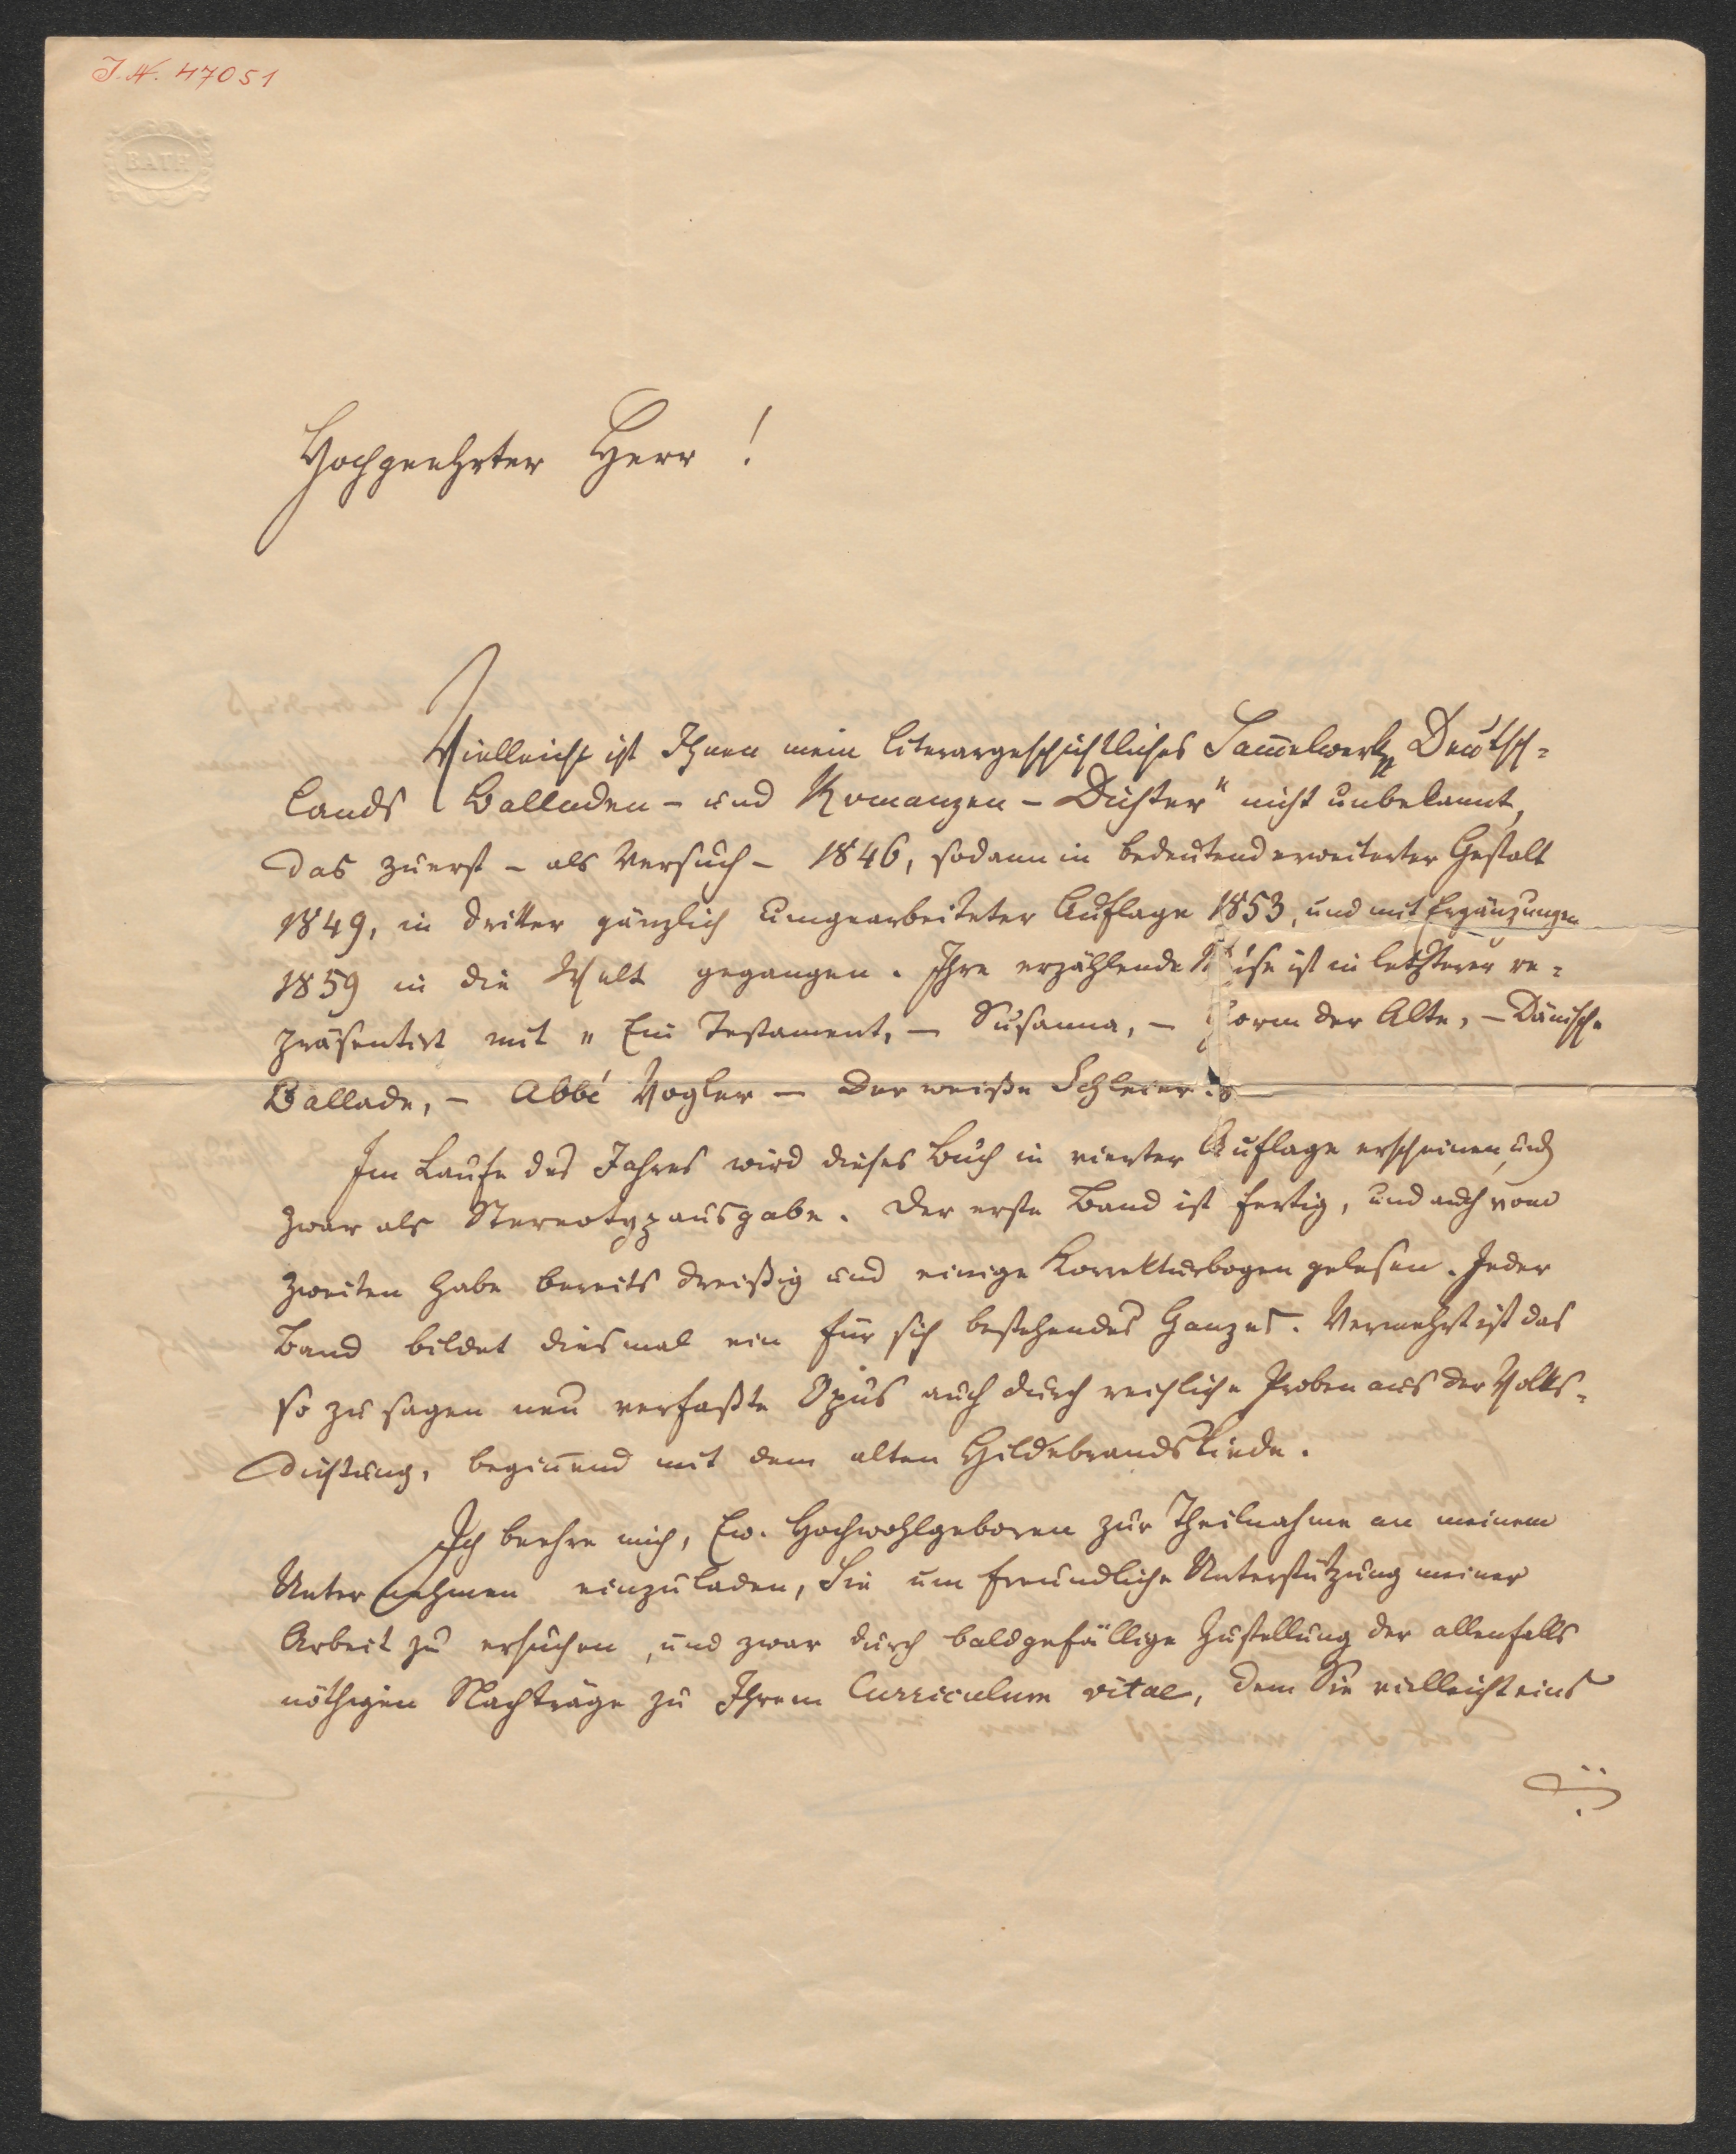 J. N. 47051
BATH
Hochgeehrter Herr !
Vielleicht ist Ihnen mein literargeschichtliches Sam̅elwerk „Deutsch=
lands Balladen- und Romanzen-Dichter" nicht unbekannt,
das zuerst - als Versuch - 1846, sodann in bedeutend erweiterter Gestalt
1849, in dritter gänzlich umgearbeiteter Auflage 1853, und mit Ergänzungen
1859 in die Welt gegangen. Ihre erzählende ist in letzterer re=
präsentirt mit „Ein Testament, - Susanna, - Gorm der Alte, - Dänische
Ballade, - Abbé Vogler - Der weiße Schleier.
Im Laufe des Jahres wird dieses Buch in vierter Auflage erscheinen, und
zwar als Stereotypausgabe. Der erste Band ist fertig, und auch vom
zweiten habe bereits dreißig und einige Korrekturbogen gelesen. Jeder
Band bildet diesmal ein für sich bestehendes Ganzes. Vermehrt ist das
so zu sagen neu verfaßte Opus auch durch reichliche Proben aus der Volks=
dichtung, begin̅end mit dem alten Hildebrandsliede.
Ich beehre mich, Ew. Hochwohlgeboren zur Theilnahme an meinem
Unternehmen einzuladen, Sie um freundliche Unterstützung meiner
Arbeit zu ersuchen, und zwar durch baldgefällige Zustellung der allenfalls
nöthigen Nachträge zu Ihrem Curriculum vitae, dem Sie vielleicht eins